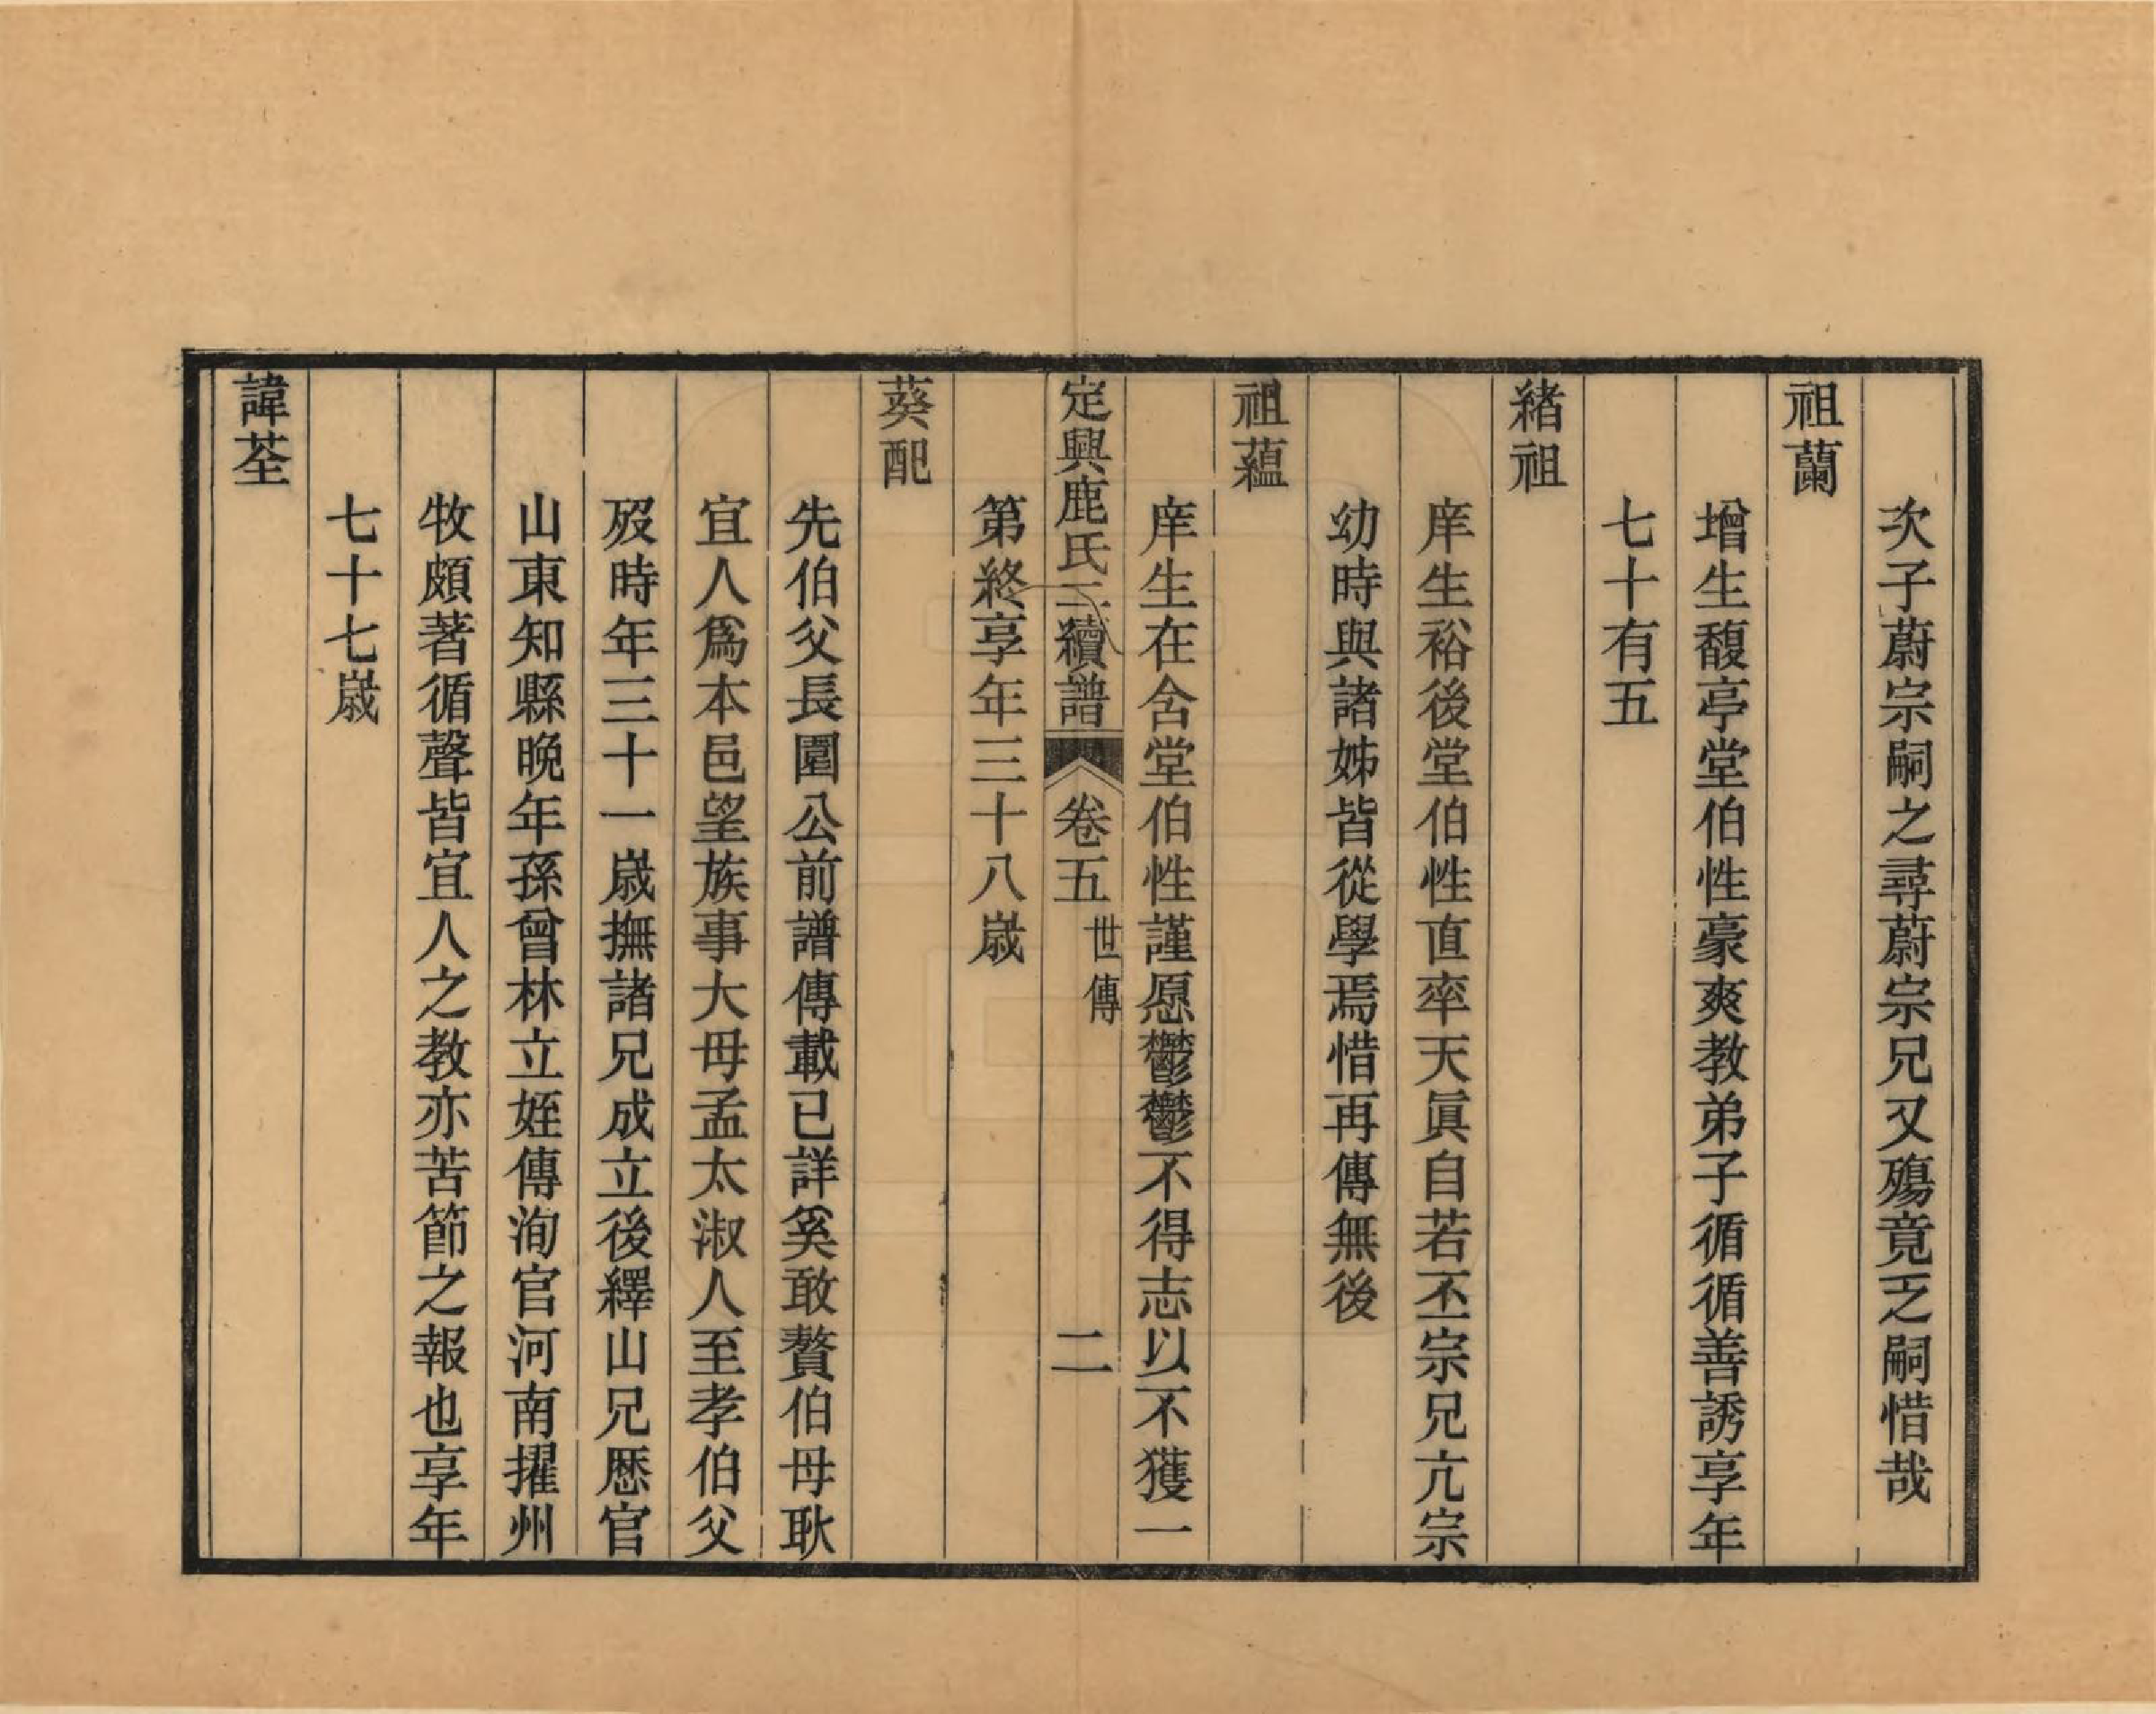 次子蔚宗嗣之尋蔚宗兄又殤竟乏嗣惜哉
祖蘭
增生馥亭堂伯性豪爽教弟子循循善誘享年
七十有五
緒祖
庠生裕後堂伯性直率天眞自若丕宗兄亢宗
幼時與諸姊皆從學焉惜再傳無後
祖蘊
庠生在含堂伯性謹愿鬱鬱不得志以不獲一
定興鹿氏二續譜 卷五 世傳 二
第終享年三十八歲
葵配
先伯父長園公前譜傳載已詳奚敢贅伯母耿
宜人爲本邑望族事大母孟太淑人至孝伯父
歿時年三十一歲撫諸兄成立後繹山兄歷官
山東知縣晚年孫曾林立姪傳洵官河南擢州
牧頗著循聲皆宜人之教亦苦節之報也享年
七十七歲
諱荃